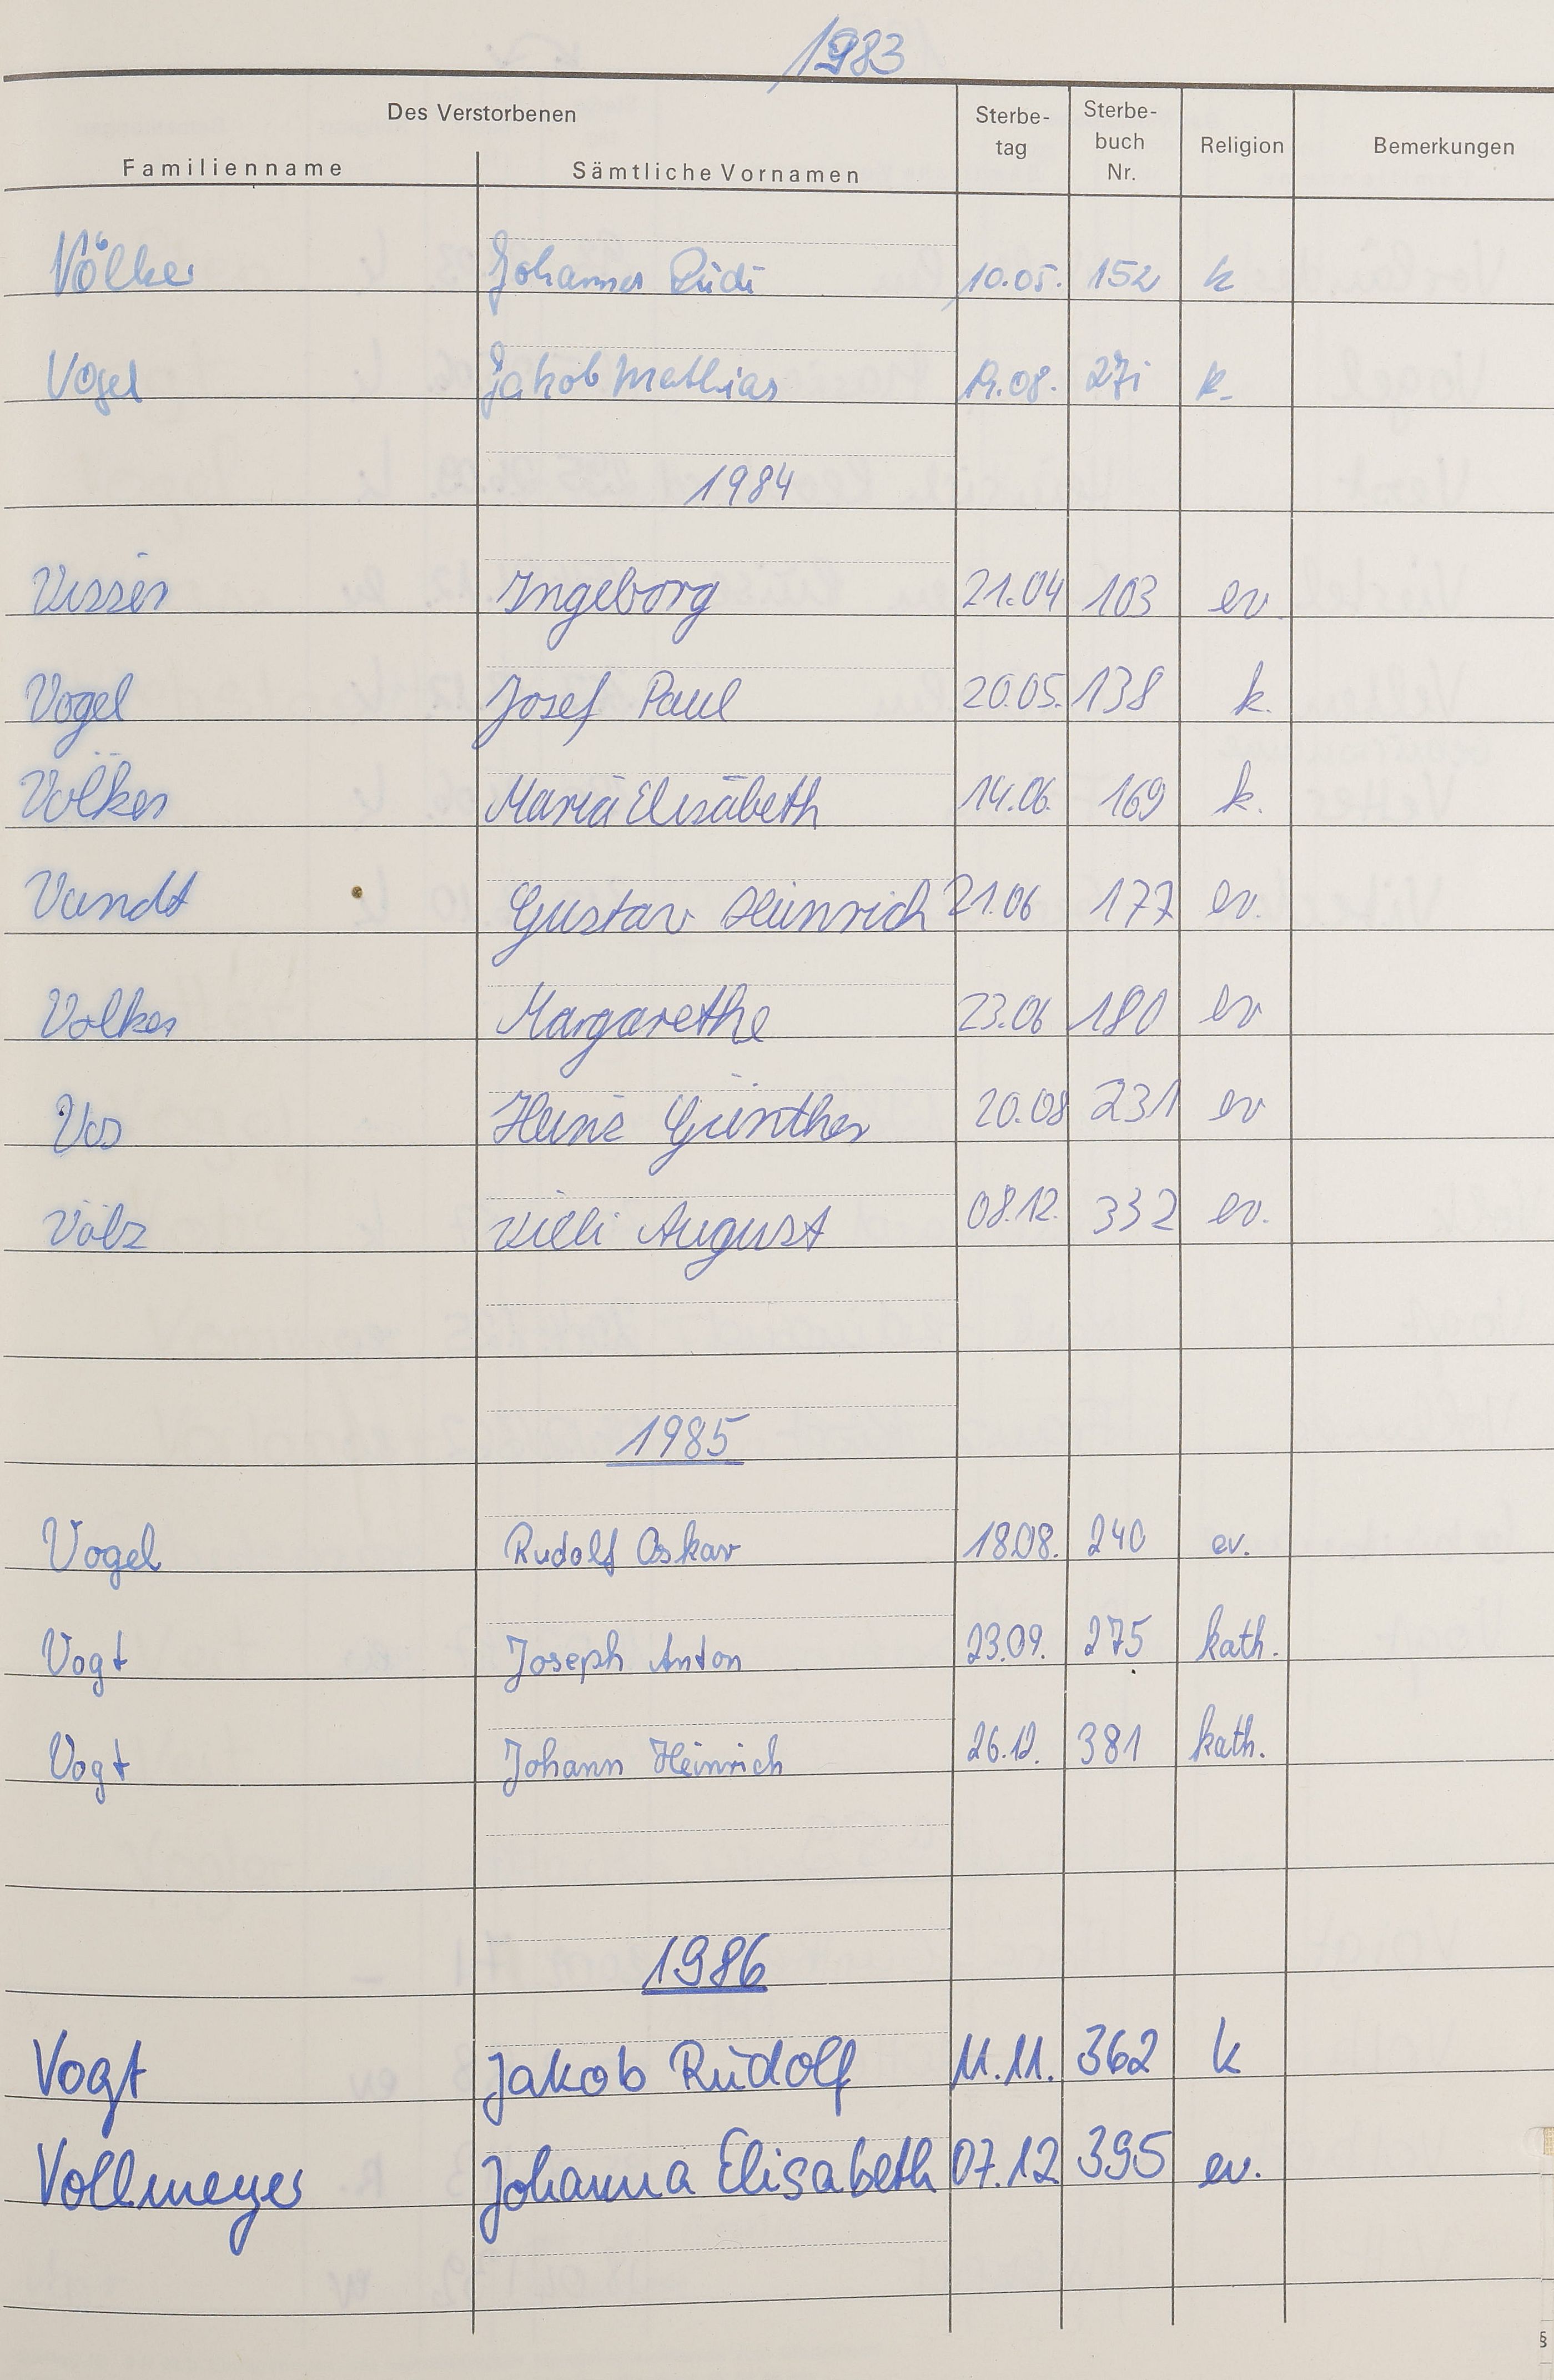 1983
Des Verstorbenen
Familienname Sämtliche Vornamen Sterbe-tag Sterbe-buch Nr. Religion Bemerkungen
Völker Johannes Rudi 10.05. 152 k
Vogel Jakob Mathias 19.08. 271 k.
1984
Visser Ingeborg 21.04 103 ev.
Vogel Josef Paul 20.05. 138 k.
Völker Maria Elisabeth 14.06. 169 k.
Gustav Heinrich 21.06 177 ev.
Volker Margarethe 23.06 180 ev
Vos Heinz Günther 20.08 231 ev
Völz Willi August 08.12. 332 ev.
1985
Vogel Rudolf Oskar 18.08. 240 ev.
Vogt Joseph Anton 23.09. 275 kath.
Vogt Johann Heinrich 26.12. 381 kath.
1986
Vogt Jakob Rudolf 11.11. 362 k
Vollmeyer Johanna Elisabeth 07.12 395 ev.